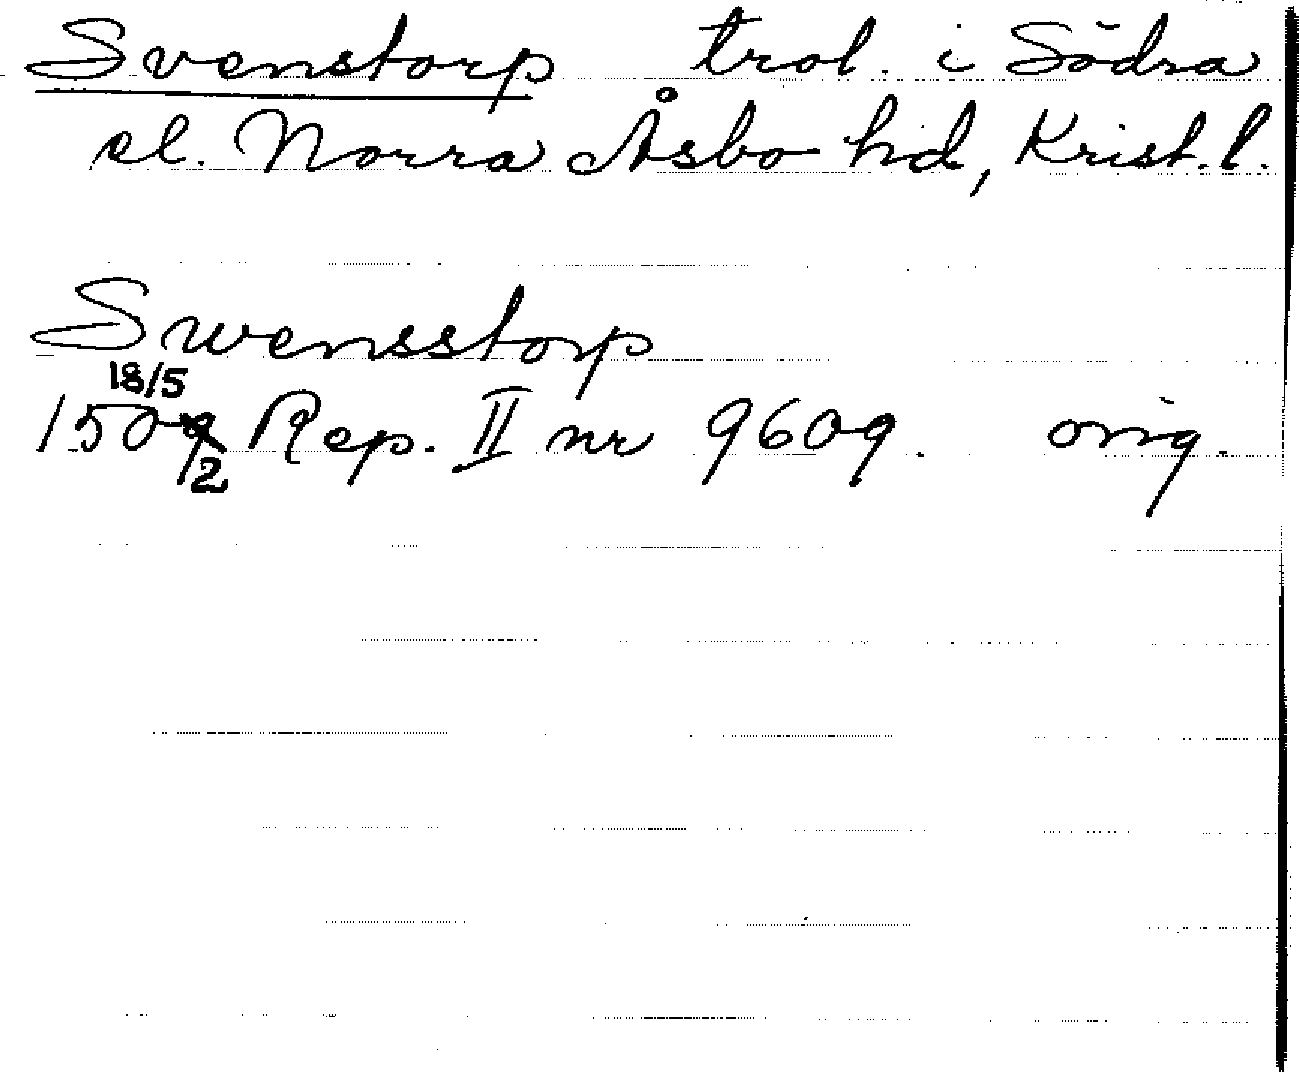 Svenstorp trol. i Södra
el. Norra Åsbo hd, Krist. l.
Swensstorp
18/5
1502 Rep. II nr 9609. orig.